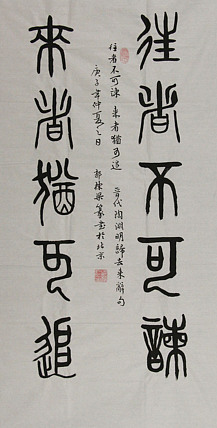 往者不可諫
來者猶可追
往者不可諫 來者猶可追 晉代陶淵明歸去來辭句
庚子年仲夏之日 郭棟梁篆書於北京